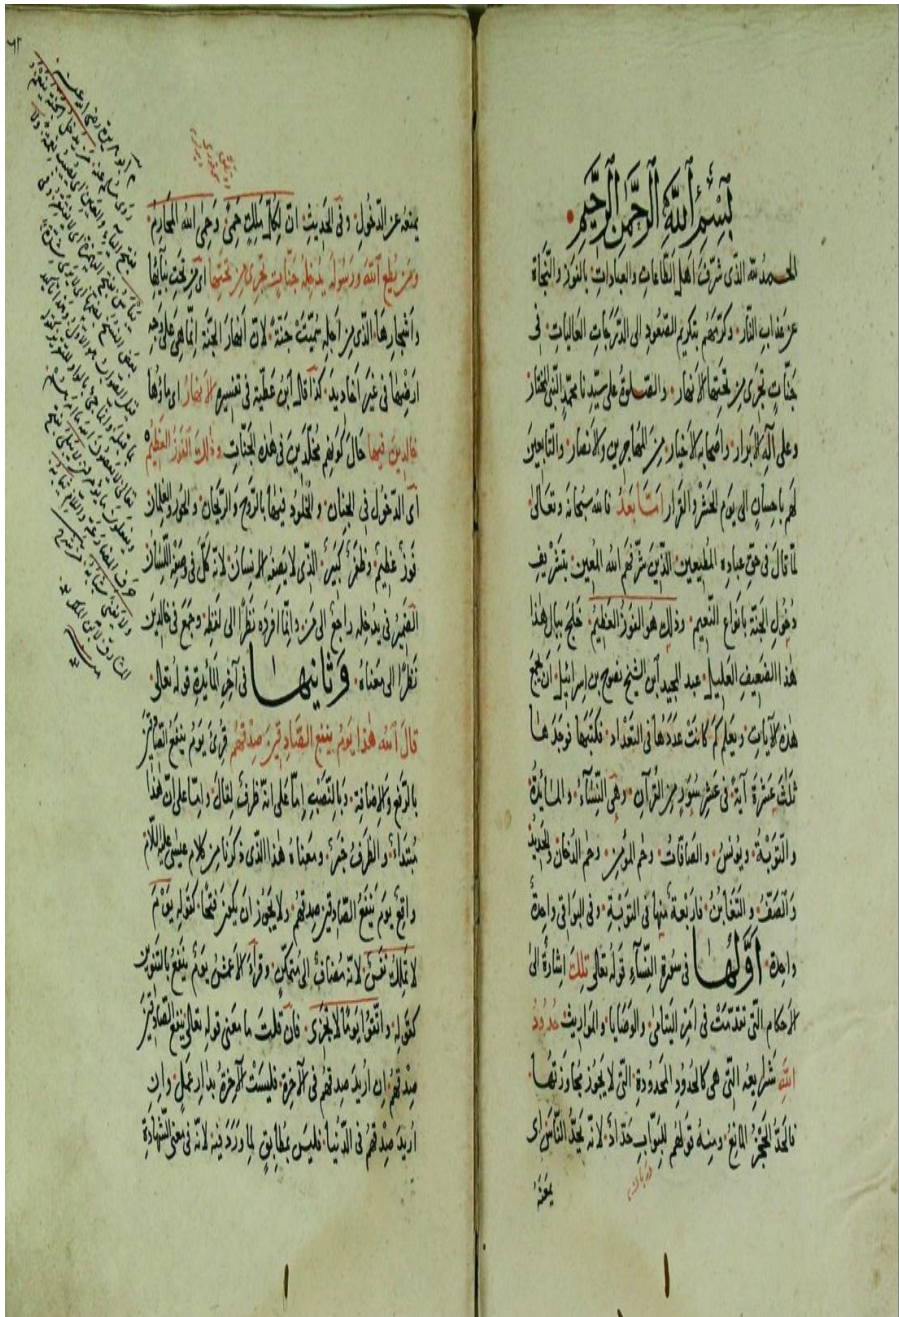 بسم الله الرحمن الرحيم
الحمد لله الذي شرف اهل الطاعات والعبادات بالفوز والنجاة
عن عذاب النار وكرمهم بتكريم الصعود الى الدرجات العاليات في
جنات تجرى من تحتها الانهار والصلوة على سيدنا محمد النبي المختار
وعلى آله الابرار واصحابه الاخيار من المهاجرين والانصار والتابعين
لهم باحسان الى يوم الحشر والقرار اما بعد فالله سبحانه وتعالى
لما قال في حق عباده المطيعين الذين شرفهم الله المعين بتشريف
دخول الجنة بانواع النعيم وذلك هو الفوز العظيم خلج ببال هذا
هذا الضعيف العليل عبد المجيد ابن الشيخ نصوح بن اسرائيل ان يجمع
هذه الآيات ويعلم كم كانت عددها في التعداد فكتبها فوجدها
ثلث عشرة آية في عشر سور من القرآن وهي النساء والمائدة
والتوبة ويونس والصافات وحم المؤمن وحم الدخان والحديد
والصف والتغابن فاربعة منها في التوبة وفي البواقي واحدة
واحدة اولها في سورة النساء قوله تعالى تلك اشارة الى
الاحكام التي تقدمت في امر اليتامى والوصايا والمواريث حدود
الله شرايعه التي هي كالحدود المحدودة التي لا يجوز مجاوزتها
فالحد الحجز المانع ومنه قولهم للبواب حداد لانه يحد الناس اى
يمنعه
يمنعه عن الدخول وفي الحديث ان لكل ملك حمى وحمى الله المحارم
ومن يطع الله ورسوله يدخله جنات تجرى من تحتها اى من تحت بنائها
واشجارها الذى من اجله سميت جنة لان انهار الجنة انما هي على وجه
ارضها في غير اخاديد كذا قال ابن عطية في تفسيره الانهار اى ماؤها
خالدين فيها حال كونهم مخلدين في هذه الجنات وذلك الفوز العظيم
اى الدخول في الجنان والخلود فيها بالروح والريحان والحور والغلمان
فوز عظيم وظفر كبير الذى لا يصفه الانسان لانه كل في وصفه اللسان
الضمير في يدخله راجع الى من وانما افرده نظرا الى لفظه وجمع في خالدين
نظرا الى معناه وثانيها في آخر المائدة قوله تعالى
قال الله هذا يوم ينفع الصادقين صدقهم قرئ يوم ينفع الصادقين
بالرفع والاضافة وبالنصب اما على انه ظرف لقال واما على ان هذا
مبتداء والظرف خبر ومعناه هذا الذى ذكرنا من كلام عيسى عليه السلام
واقع يوم ينفع الصادقين صدقهم ولا يجوز ان يكون فتحا كقوله يوم
لا تملك نفس لانه مضاف الى متمكن وقرأ الاعمش يوم ينفع بالتنوين
كقوله واتقوا يوما لا تجزى فان قلت ما معنى قوله تعالى ينفع الصادقين
صدقهم ان اريد صدقهم في الآخرة فليست الآخرة بدار عمل وان
اريد صدقهم في الدنيا فليس بمطابق لما ورد فيه لانه في معنى الشهادة